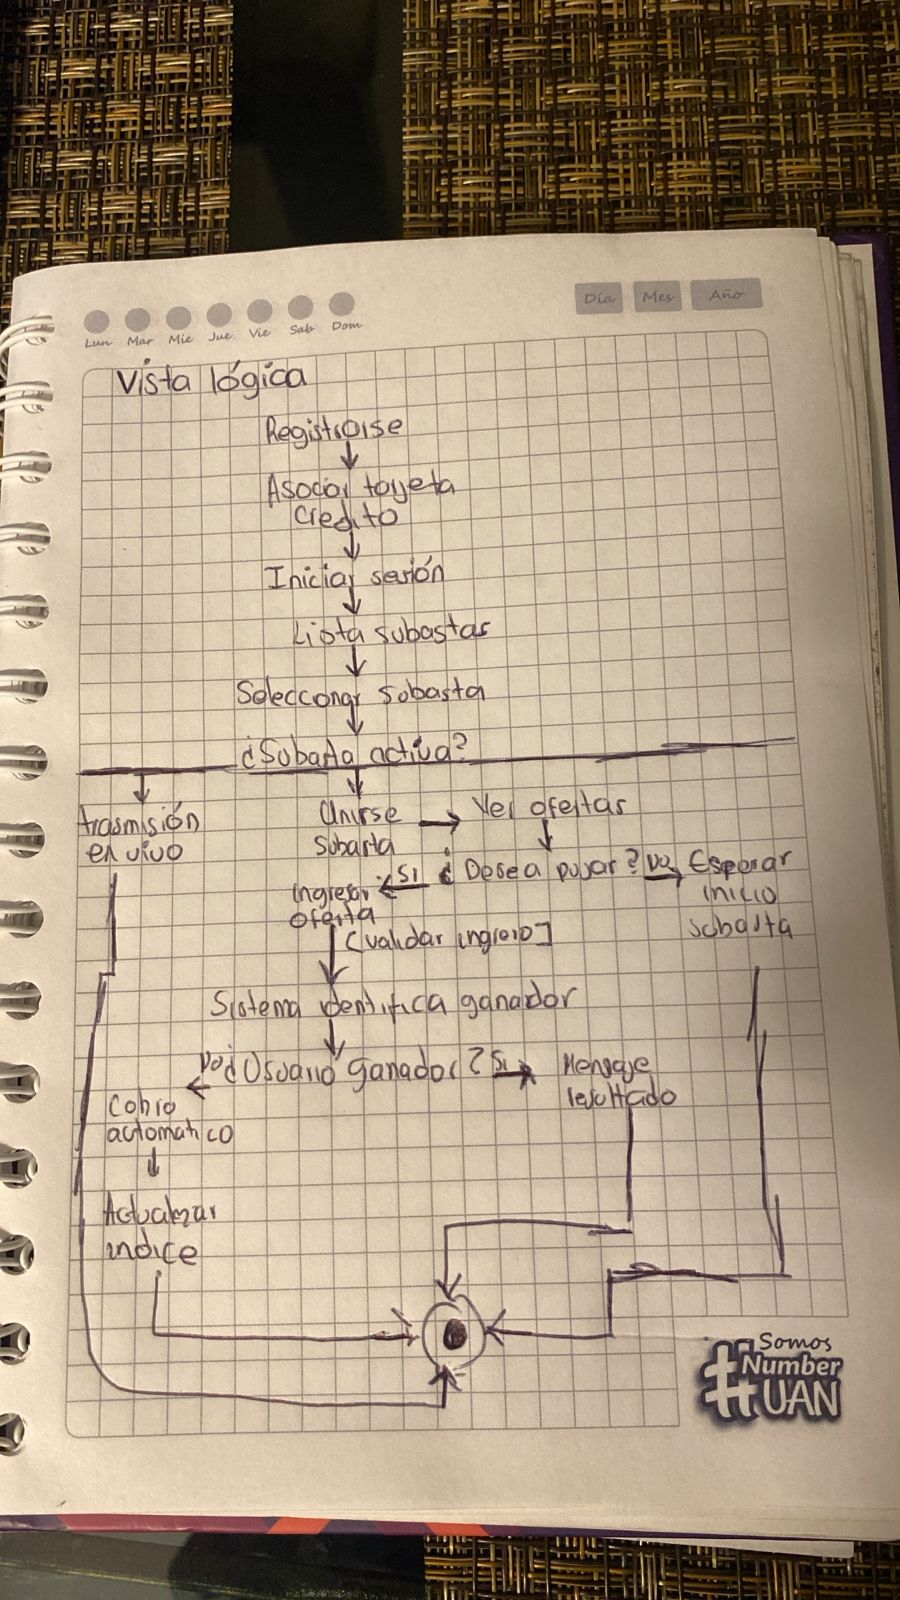 Lun Mar Mie Jue Vie Sab Dom
Día Mes Año
Vista lógica
Registrarse
Asociar tarjeta
credito
Iniciar sesión
Lista subastas
Seleccionar subasta
¿Subasta activa?
trasmisión
en vivo
Unirse
subasta
Ver ofertas
¿Desea pujar?
SI
no
Ingresar
oferta
Esperar
inicio
subasta
[validar ingreso]
Sistema identifica ganador
¿Usuario ganador?
no
Si
Mensaje
resultado
Cobro
automatico
Actualizar
indice
Somos
#Number
UAN